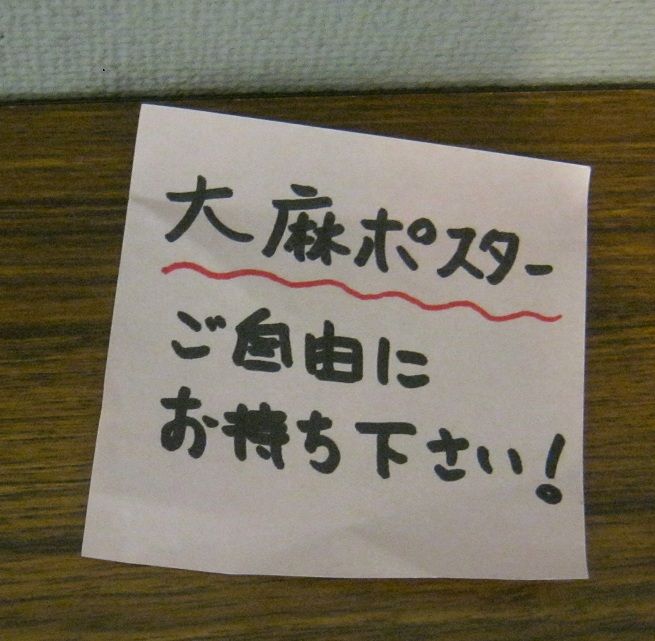 大麻ポスター
ご自由に
お持ち下さい!